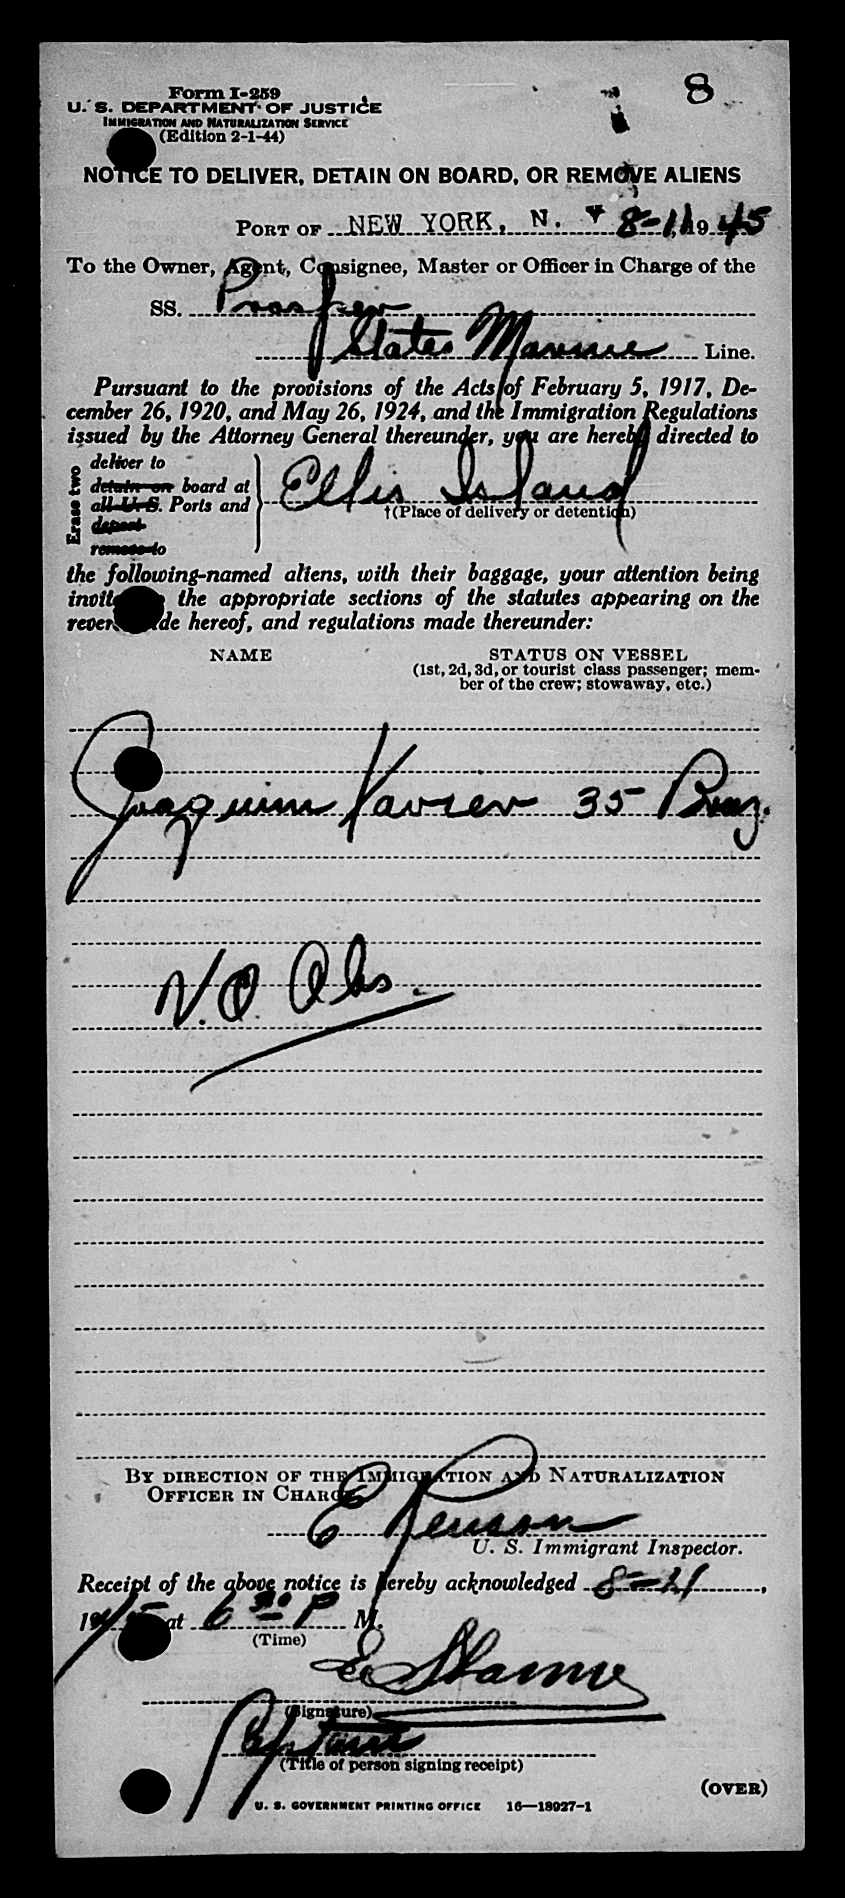 8
Form I-259
U. S. DEPARTMENT OF JUSTICE
IMMIGRATION AND NATURALIZATION SERVICE
(Edition 2-1-44)
NOTICE TO DELIVER, DETAIN ON BOARD, OR REMOVE ALIENS
PORT OF NEW YORK, N. Y 8-11, 1945
To the Owner, Agent, Consignee, Master or Officer in Charge of the
SS. Prosper
States Marine Line.
Pursuant to the provisions of the Acts of February 5, 1917, De-
cember 26, 1920, and May 26, 1924, and the Immigration Regulations
issued by the Attorney General thereunder, you are hereby directed to
Erase two
deliver to
detain on board at
all U. S. Ports and
deport
remove to
Ellis Island
†(Place of delivery or detention)
the following-named aliens, with their baggage, your attention being
the appropriate sections of the statutes appearing on the
hereof, and regulations made thereunder:
NAME STATUS ON VESSEL
(1st, 2d, 3d, or tourist class passenger; mem-
ber of the crew; stowaway, etc.)
Joaquim Xavier 35 Braz.
N.O. Obs.
BY DIRECTION OF THE IMMIGRATION AND NATURALIZATION
OFFICER IN CHARGE
E
U. S. Immigrant Inspector.
Receipt of the above notice is hereby acknowledged 8-11,
1945 at 6 30 P M.
(Time)
(Signature)
Captain
(Title of person signing receipt)
U. S. GOVERNMENT PRINTING OFFICE 16—18927-1
(OVER)